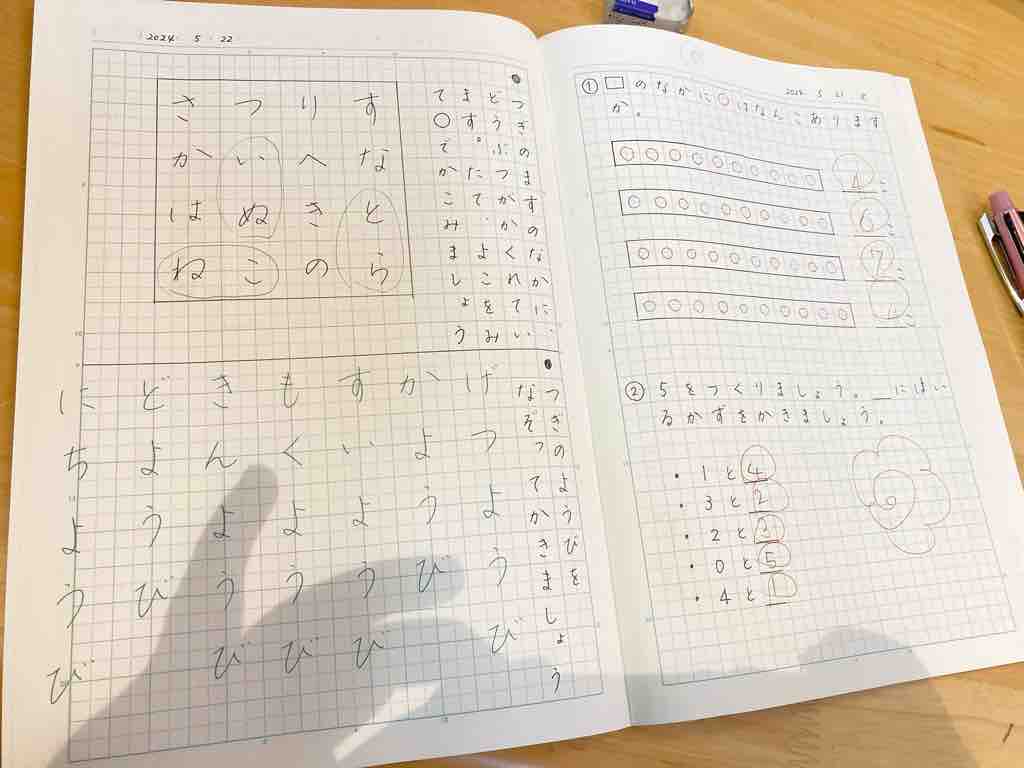 2024. 5. 22
つぎのますのなかに、
どうぶつがかくれてい
ます。たて、よこをみ
て○でかこみましょう
すなとら
りへきの
ついぬこ
さかはね
つぎのようびを
なぞってかきましょう
げつようび
かようび
すいようび
もくようび
きんようび
どようび
にちようび
① □のなかに○はなんこあります
か。
6こ
7こ
② 5をつくりましょう。＿にはい
るかずをかきましょう。
・1と4
・3と2
・2と3
・0と5
・4と1